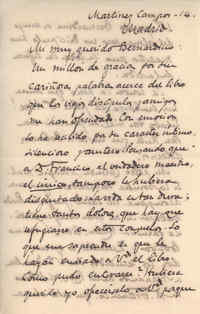 Martinez Campos - 14.
Madrid
Mi muy querido Bernardino:
Un millon de gracias por sus
cariñosas palabras acerca del libro
que los viejos discípulos y amigos
me han ofrendado. Con emoción
lo he recibido por su caracter íntimo
silencioso y austero. Pensando que
a D. Francisco, el verdadero maestro,
el único, tampoco le hubiera
disgustado
tantos dolores, que hay que
refugiarse en estos consuelos. Lo
que me sorprende es que le
hayan enviado a Vd. el libro
como pudo enterarse. Hubiera
querido yo ofrecérselo a Vd. porque